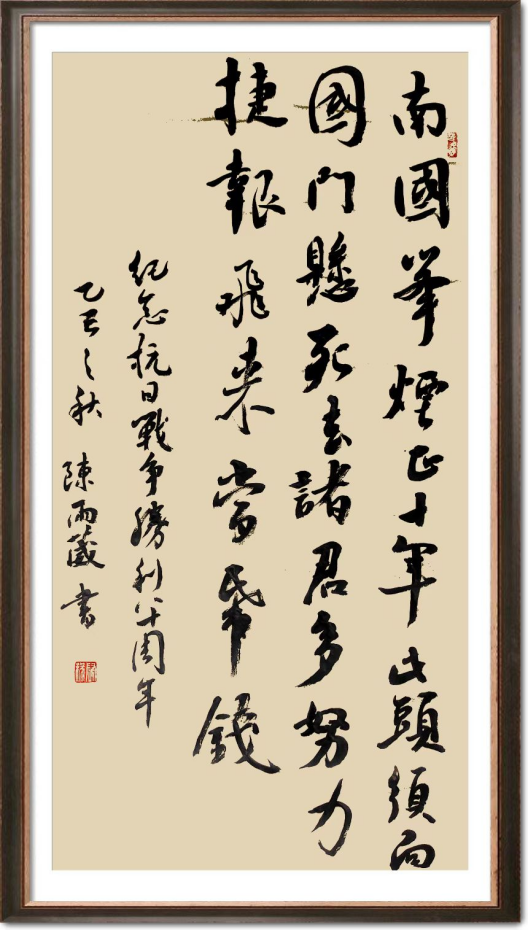 南國峯煙正十年此頭須向
國門懸死去諸君多努力
捷報飛來當帋錢
紀念抗日戰爭勝利八十周年
乙巳之秋 陳雨葳 書